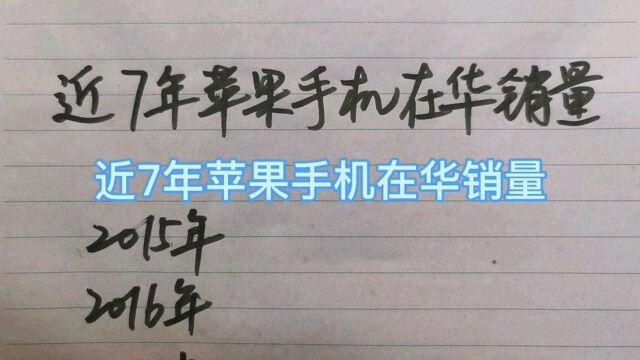 近7年苹果手机在华销量
近7年苹果手机在华销量
2015年
2016年